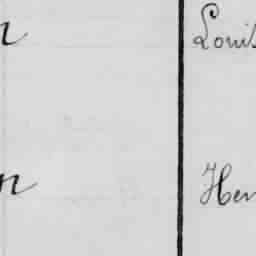 n Louis
n Hen